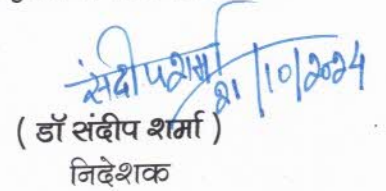 संदीप शर्मा
21/10/2024
( डॉ संदीप शर्मा )
निदेशक